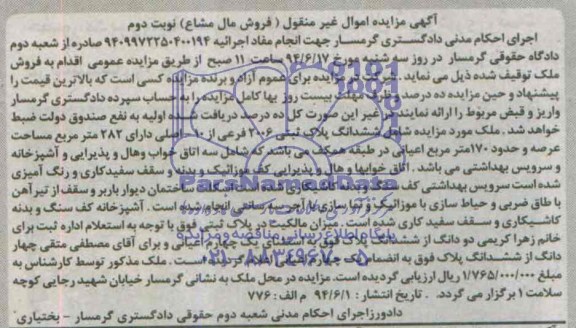 آگهی مزایده اموال غیر منقول ( فروش مال مشاع) نوبت دوم
اجرای احکام مدنی دادگستری گرمسار جهت انجام مفاد اجرائیه ۹۴۰۹۹۷۲۳۵۰۴۰۰۱۹۴ صادره از شعبه دوم
دادگاه حقوقی گرمسار در روز سه شنبه مورخ ۹۴/۶/۱۷ ساعت ۱۱ صبح از طریق مزایده عمومی اقدام به فروش
ملک توقیف شده ذیل می نماید . شرکت در مزایده برای عموم آزاد و برنده مزایده کسی است که بالاترین قیمت را
پیشنهاد و حین مزایده ده درصد و ظرف مهلت بیست روز بها کامل مزایده را به حساب سپرده دادگستری گرمسار
واریز و قبض مربوط را ارائه نمایند در غیر این صورت کل ده درصد دریافت شده اولیه به نفع صندوق دولت ضبط
خواهد شد . ملک مورد مزایده شامل ششدانگ پلاک ثبتی ۲۰۰۶ فرعی از ۱۰ اصلی دارای ۲۸۲ متر مربع مساحت
عرصه و حدود ۱۷۰متر مربع اعیانی در طبقه همکف می باشد که شامل سه اتاق خواب وهال و پذیرایی و آشپزخانه
و سرویس بهداشتی می باشد . اتاق خوابها و هال و پذیرایی کف موزائیک و بدنه و سقف سفیدکاری و رنگ آمیزی
شده است سرویس بهداشتی کف ساختمان دیوار باربر و سقف از تیر آهن
با طاق ضربی و حیاط سازی با موزائیک و نما سازی با آجر سه سانتی انجام شده است . آشپزخانه کف سنگ و بدنه
کاشیکاری و سقف سفید کاری شده است . میزان مالکیت در پلاک ثبتی فوق با توجه به استعلام اداره ثبت برای
خانم زهرا کریمی دو دانگ از ششدانگ پلاک فوق به استثنای یک چهارم اعیانی و برای آقای مصطفی متقی چهار
دانگ از ششدانگ پلاک فوق به انضمام یک چهارم اعیانی اعلام گردیده است . ملک مذکور توسط کارشناس به
مبلغ ۱/۷۶۵/۰۰۰/۰۰۰ ریال ارزیابی گردیده است. مزایده در محل ملک به نشانی گرمسار خیابان شهید رجایی کوچه
سلامت ۱ برگزار می گردد. . تاریخ انتشار : ۹۴/۶/۱ م الف : ۷۷۶
دادورز اجرای احکام مدنی شعبه دوم حقوقی دادگستری گرمسار – بختیاری
ParsNamadData
پایگاه اطلاع رسانی مناقصه و مزایده
۰۲۱-۸۸۳۴۹۶۷۰-۵